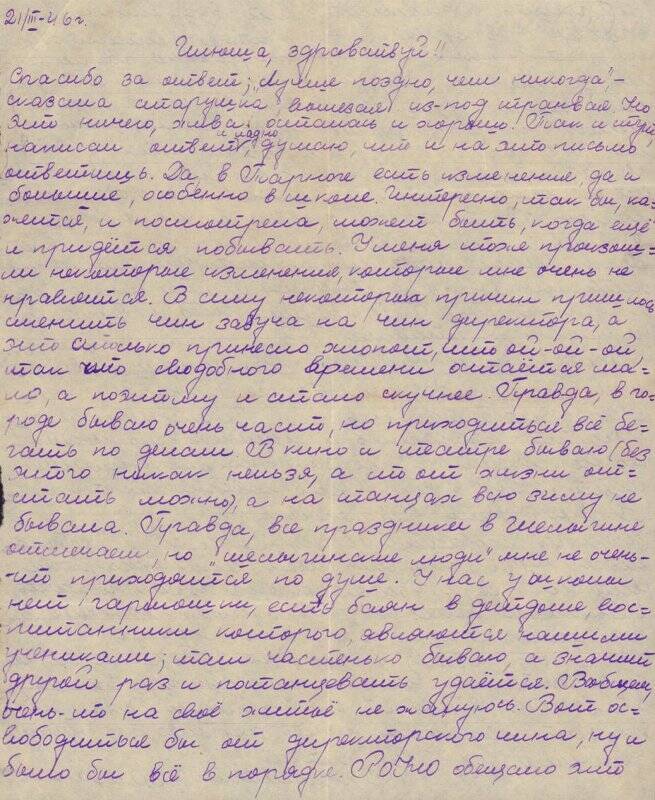 21/III-46 г.
Илюша, здравствуй!!
Спасибо за ответ; „Лучше поздно, чем никогда",-
сказала старушка вылезая из-под трамвая. Но
это ничего, жива осталась и хорошо. Так и ты,
написал ответ, и ладно думаю, что и на это письмо
ответишь. Да, в Тарноге есть изменения, да и
большие, особенно в школе. Интересно, так бы, ка-
жется, и посмотрела, может быть, когда ещё
и придётся побывать. У меня тоже произош=
ли некоторые изменения, которые мне очень не
нравятся. В силу некоторых причин пришлось
сменить чин завуча на чин директора, а
это столько принесло хлопот, что ой-ой-ой,
так что свободного времени остаётся ма-
ло, а поэтому и стало скучнее. Правда, в го-
роде бываю очень часто, но приходиться всё бе-
гать по делам. В кино и театре бываю (без
этого никак нельзя, а то от жизни от=
стать можно), а на танцах всю зиму не
бывала. Правда, все праздники в
отмечаем, но люди" мне не очень-
-то приходятся по душе. У нас у школы
нет гармошки, есть баян в детдоме, вос-
питанники которого, являются нашими
учениками; там частенько бываю, а значит
другой раз и потанцевать удаётся. Вобщем,
очень-то на своё житьё не жалуюсь. Вот ос-
вободиться бы от директорского чина, ну и
было бы всё в порядке. РОНО обещало это